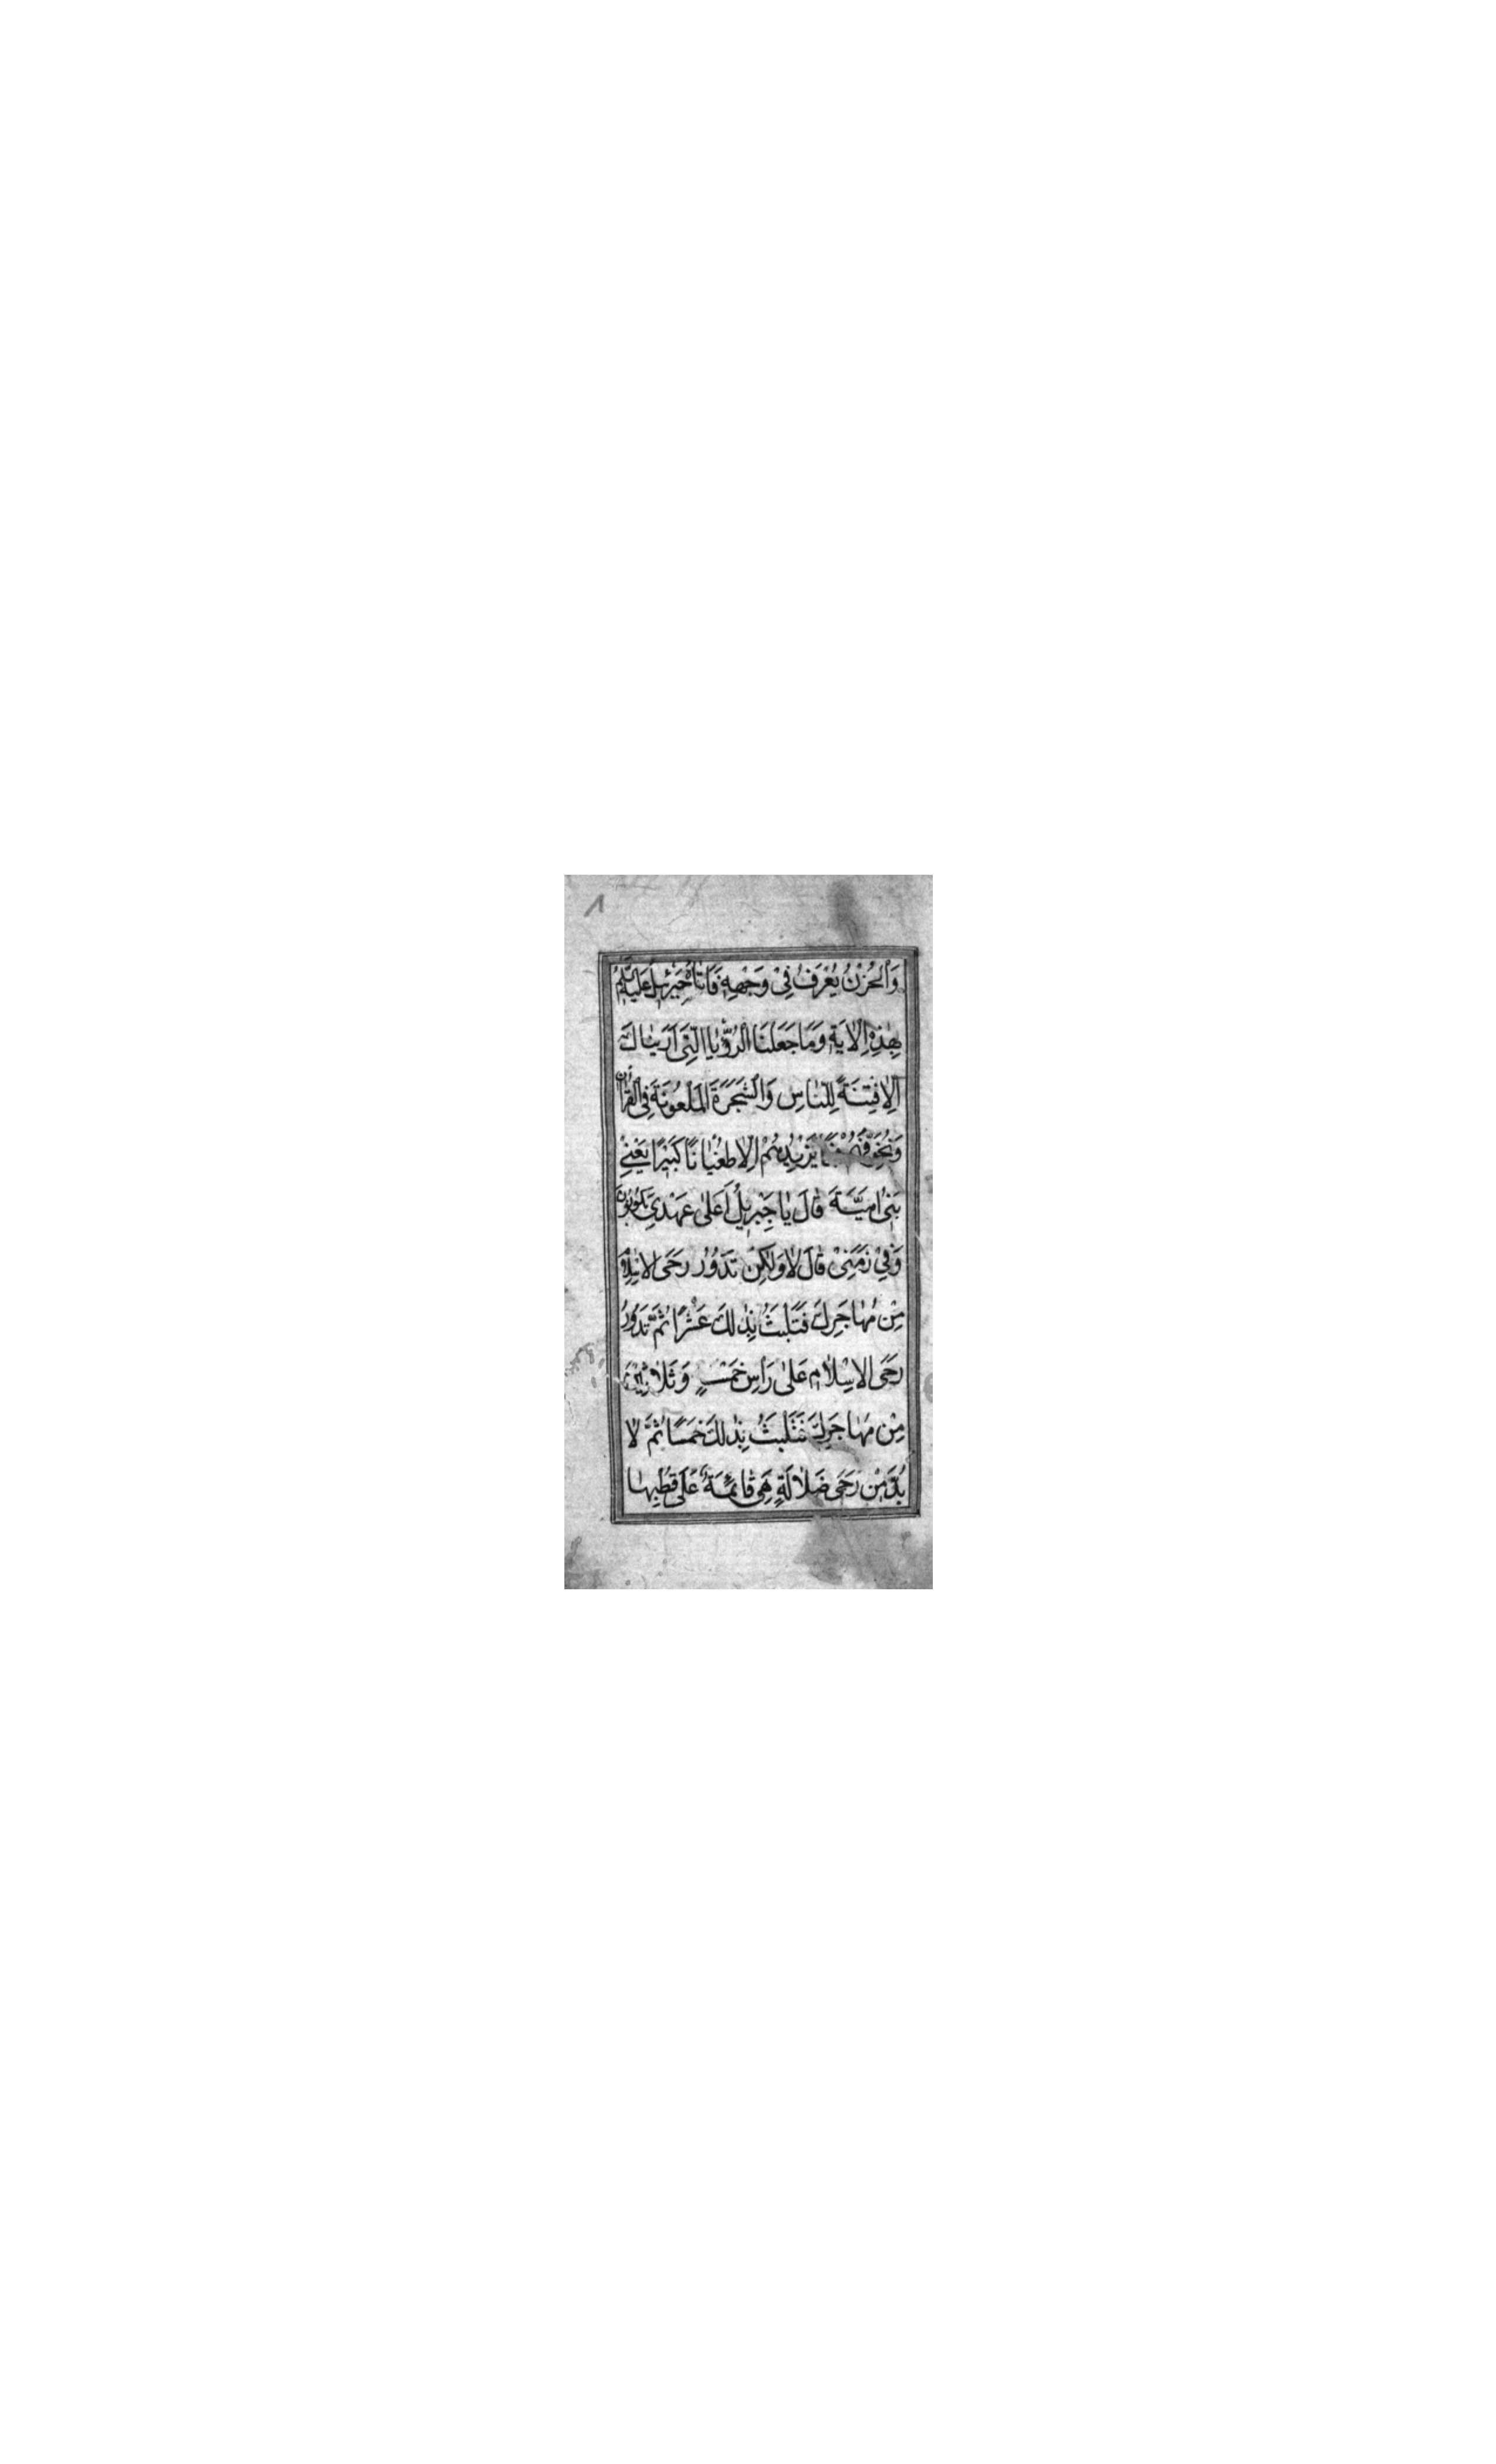 ٨
وَالْحُزْنُ يُعْرَفُ فِيْ وَجْهِهِ فَاَتَاهُ جَبْرَئِيلُ عَلَيْهِ السَّلَمُ
بِهٰذِهِ الْاٰيَةِ وَمَا جَعَلْنَا الرُّؤْيَا الَّتِى اَرَيْنَاكَ
اِلَّا فِتْنَةً لِلنَّاسِ وَالشَّجَرَةَ الْمَلْعُونَةَ فِى الْقُرْاٰنِ
وَنُخَوِّفُهُمْ فَمَا يَزِيْدُهُمْ اِلَّا طُغْيَانًا كَبِيْرًا يَعْنِيْ
بَنِىْ اُمَيَّةَ قَالَ يَا جِبْرِيْلُ اَعَلٰى عَهْدِىْ يَكُونُونَ
وَفِيْ زَمَنِىْ قَالَ لَا وَلٰكِنْ تَدُوْرُ رَحَى الْاِسْلَامِ
مِنْ مُهَاجَرِكَ فَتَلْبَثُ بِذٰلِكَ عَشْرًا ثُمَّ تَدُوْرُ
رَحَى الْاِسْلَامِ عَلٰى رَاْسِ خَمْسٍ وَثَلَاثِيْنَ
مِنْ مُهَاجَرِكَ فَتَلْبَثُ بِذٰلِكَ خَمْسًا ثُمَّ لَا
بُدَّ مِنْ رَحَى ضَلَالَةٍ هِىَ قَائِمَةٌ عَلَى قُطْبِهَا